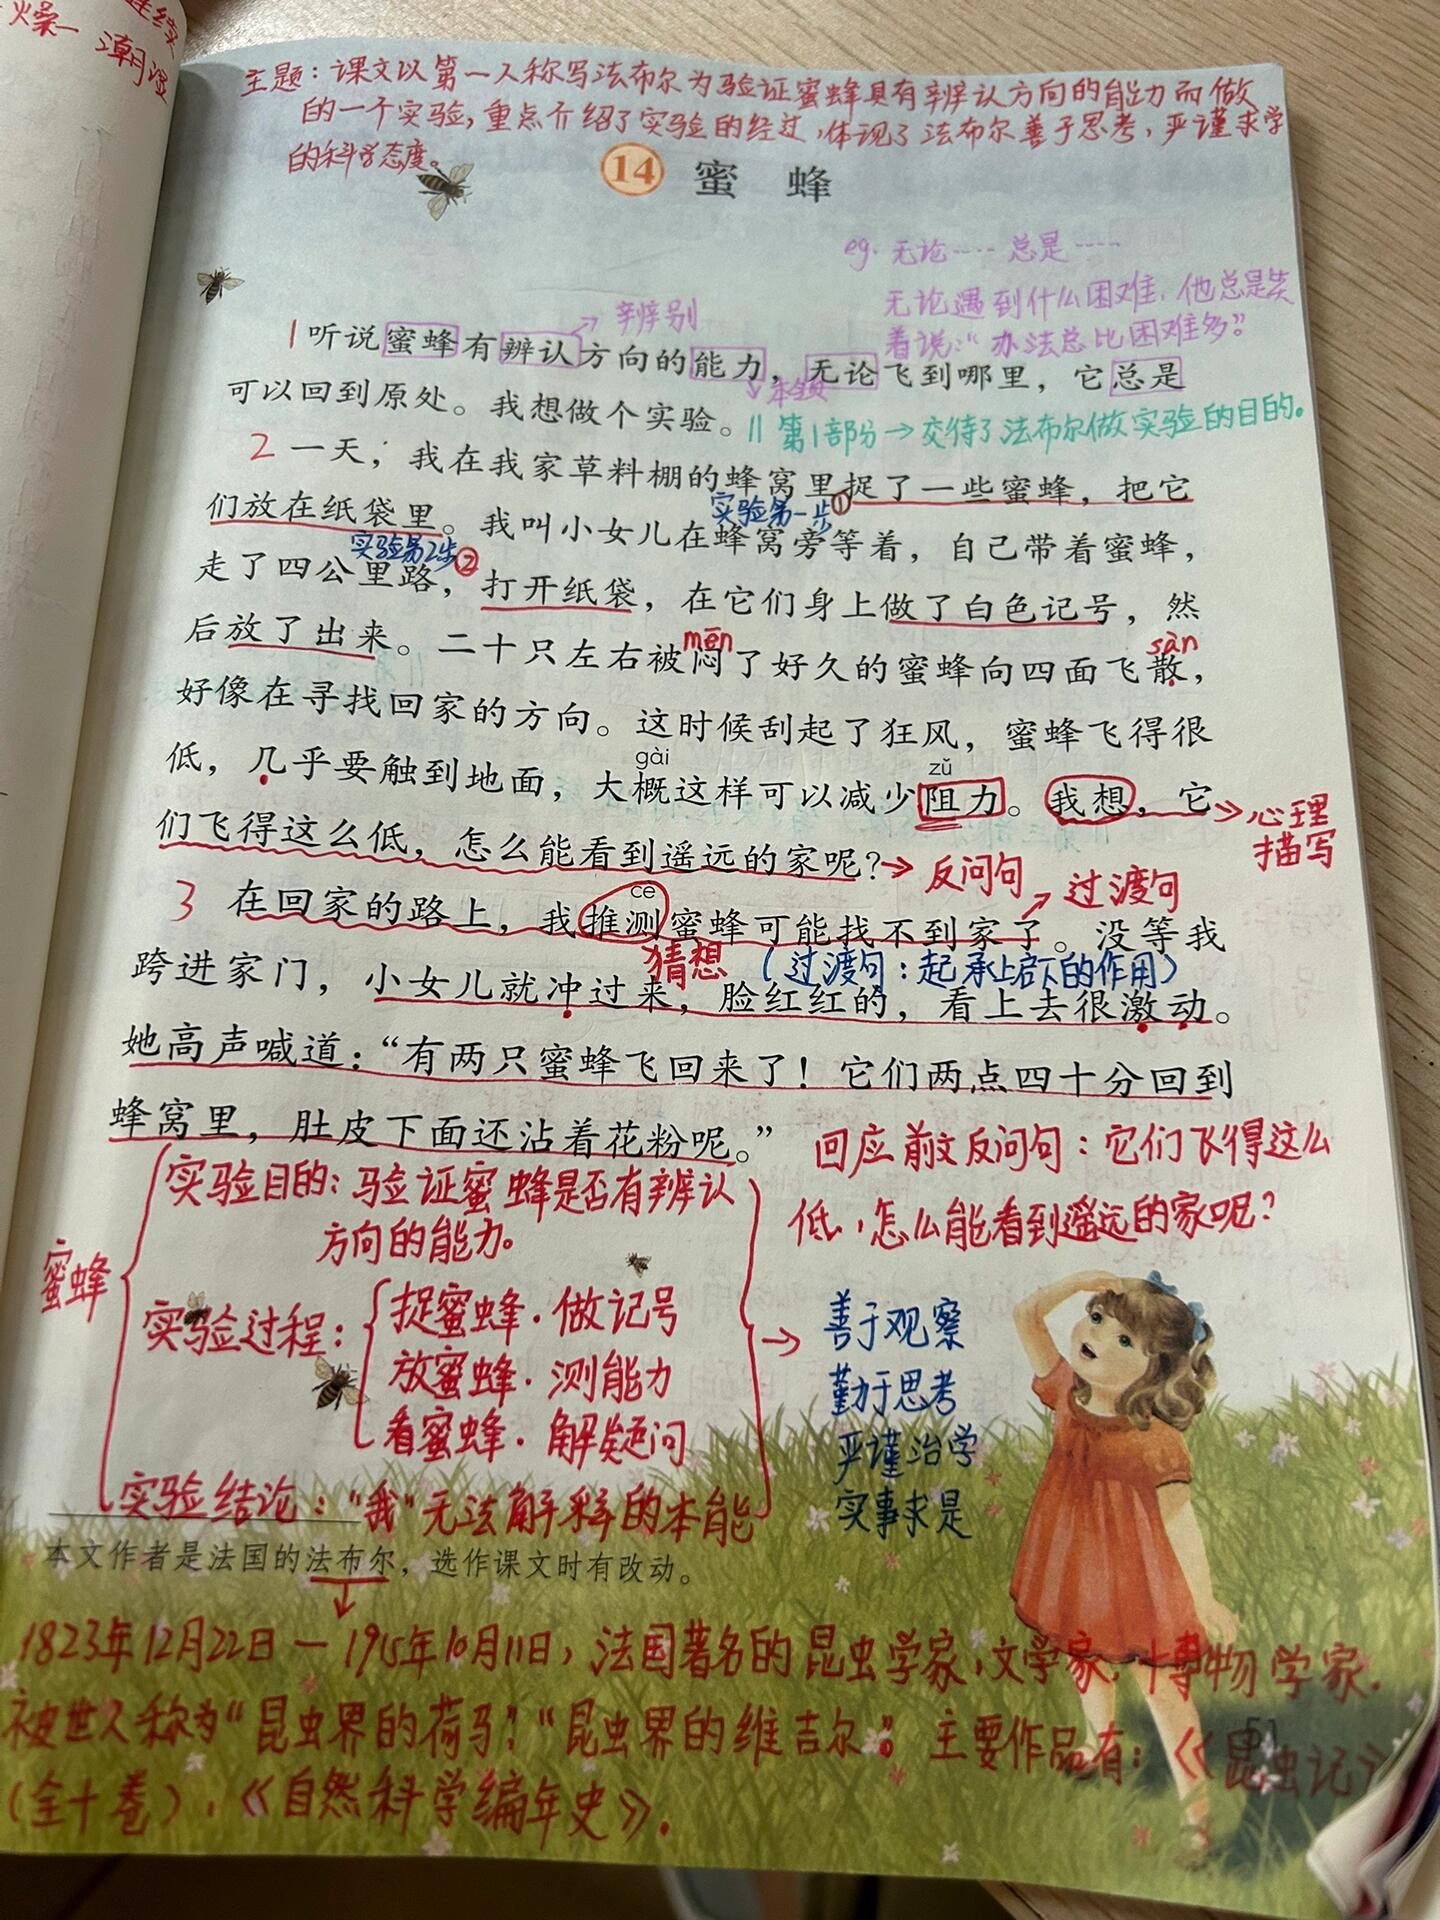 燥— 潮湿
主题：课文以第一人称写法布尔为验证蜜蜂具有辨认方向的能力而做
的一个实验，重点介绍了实验的经过，体现了法布尔善于思考，严谨求学
的科学态度。
14 蜜蜂
eg. 无论…… 总是……
无论遇到什么困难，他总是笑
着说：“办法总比困难多”
辨别
1 听说蜜蜂有辨认方向的能力，无论飞到哪里，它总是
本领
可以回到原处。我想做个实验。
第1部分→交待了法布尔做实验的目的。
2 一天，我在我家草料棚的蜂窝里捉了一些蜜蜂，把它
实验第一步①
们放在纸袋里。我叫小女儿在蜂窝旁等着，自己带着蜜蜂，
实验第2步②
走了四公里路，打开纸袋，在它们身上做了白色记号，然
mēn sàn
后放了出来。二十只左右被闷了好久的蜜蜂向四面飞散，
好像在寻找回家的方向。这时候刮起了狂风，蜜蜂飞得很
gài zǔ
低，几乎要触到地面，大概这样可以减少阻力。我想，它
心理
描写
们飞得这么低，怎么能看到遥远的家呢？→ 反问句
过渡句
cè
3 在回家的路上，我推测蜜蜂可能找不到家了。没等我
猜想 （过渡句：起承上启下的作用）
跨进家门，小女儿就冲过来，脸红红的，看上去很激动。
她高声喊道：“有两只蜜蜂飞回来了！它们两点四十分回到
蜂窝里，肚皮下面还沾着花粉呢。”
回应前文反问句：它们飞得这么
低，怎么能看到遥远的家呢？
蜜蜂
实验目的：验证蜜蜂是否有辨认
方向的能力。
实验过程：
捉蜜蜂．做记号
放蜜蜂．测能力
看蜜蜂．解疑问
实验结论：“我”无法解释的本能
→
善于观察
勤于思考
严谨治学
实事求是
本文作者是法国的法布尔，选作课文时有改动。
1823年12月22日—1915年10月11日，法国著名的昆虫学家，文学家，博物学家.
被世人称为“昆虫界的荷马”“昆虫界的维吉尔”。主要作品有：《昆虫记》
（全十卷），《自然科学编年史》.
51